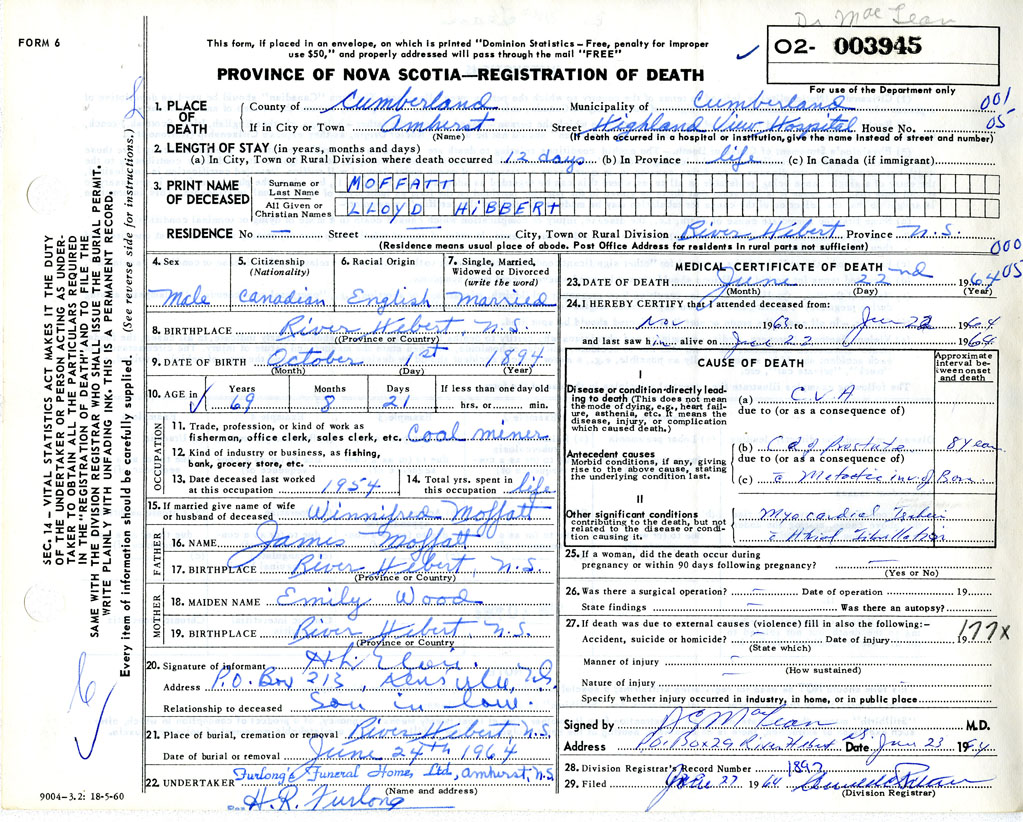 Dr MacLean
FORM 6
This form, if placed in an envelope, on which is printed "Dominion Statistics – Free, penalty for improper
use $50," and properly addressed will pass through the mail "FREE"
02- 003945
PROVINCE OF NOVA SCOTIA—REGISTRATION OF DEATH
For use of the Department only
1. PLACE OF DEATH County of Cumberland Municipality of Cumberland 001
If in City or Town Amherst Street Highland View Hospital House No. 05
(Name) (If death occurred in a hospital or institution, give the name instead of street and number)
2. LENGTH OF STAY (in years, months and days)
(a) In City, Town or Rural Division where death occurred 12 days (b) In Province life (c) In Canada (if immigrant)
3. PRINT NAME OF DECEASED Surname or Last Name MOFFATT
All Given or Christian Names LLOYD HIBBERT
RESIDENCE No — Street — City, Town or Rural Division River Hebert Province N.S.
(Residence means usual place of abode. Post Office Address for residents in rural parts not sufficient) 000
05
4. Sex Male
5. Citizenship (Nationality) Canadian
6. Racial Origin English
7. Single, Married, Widowed or Divorced (write the word) Married
8. BIRTHPLACE River Hebert, N.S.
(Province or Country)
9. DATE OF BIRTH October 1st 1894
(Month) (Day) (Year)
10. AGE in Years 69 Months 8 Days 21 If less than one day old hrs. or min.
OCCUPATION
11. Trade, profession, or kind of work as
fisherman, office clerk, sales clerk, etc. Coal miner
12. Kind of industry or business, as fishing,
bank, grocery store, etc.
13. Date deceased last worked at this occupation 1954
14. Total yrs. spent in this occupation life
15. If married give name of wife or husband of deceased Winnifred Moffatt
FATHER
16. NAME James Moffatt
17. BIRTHPLACE River Hebert, N.S.
(Province or Country)
MOTHER
18. MAIDEN NAME Emily Wood
19. BIRTHPLACE River Hebert, N.S.
(Province or Country)
20. Signature of informant
Address P.O. Box 213, N.S.
Relationship to deceased Son in law.
21. Place of burial, cremation or removal River Hebert N.S.
Date of burial or removal June 24th 1964
22. UNDERTAKER Furlong's Funeral Home, Ltd., Amherst, N.S.
(Name and address)
Per H.R. Furlong
9004-3.2: 18-5-60
MEDICAL CERTIFICATE OF DEATH
23. DATE OF DEATH June 22nd 1964
(Month) (Day) (Year)
24. I HEREBY CERTIFY that I attended deceased from:
Nov 1963 to Jun 22 1964
and last saw him alive on June 22 1964
CAUSE OF DEATH
Approximate interval between onset and death
I
Disease or condition directly leading to death (This does not mean the mode of dying, e.g., heart failure, asthenia, etc. It means the disease, injury, or complication which caused death.)
(a) C.V.A
due to (or as a consequence of)
Antecedent causes
Morbid conditions, if any, giving rise to the above cause, stating the underlying condition last.
(b) Ca of Prostate 8 Years
due to (or as a consequence of)
(c) Bone
II
Other significant conditions contributing to the death, but not related to the disease or condition causing it.
Myocardial
25. If a woman, did the death occur during
pregnancy or within 90 days following pregnancy?
(Yes or No)
26. Was there a surgical operation? – Date of operation 19
State findings Was there an autopsy?
27. If death was due to external causes (violence) fill in also the following:–
Accident, suicide or homicide? – Date of injury 19 177X
(State which)
Manner of injury –
(How sustained)
Nature of injury
Specify whether injury occurred in industry, in home, or in public place
Signed by MacLean M.D.
Address P.O. Box 29 River Hebert NS Date Jun 23 1964
28. Division Registrar's Record Number 1892
29. Filed 1964
(Division Registrar)
SEC. 14 – VITAL STATISTICS ACT MAKES IT THE DUTY
OF THE UNDERTAKER OR PERSON ACTING AS UNDERTAKER
TO OBTAIN ALL THE PARTICULARS REQUIRED
IN THE "REGISTRATION OF DEATH" AND TO FILE THE
SAME WITH THE DIVISION REGISTRAR WHO SHALL ISSUE THE BURIAL PERMIT.
WRITE PLAINLY WITH UNFADING INK – THIS IS A PERMANENT RECORD.
Every item of information should be carefully supplied. (See reverse side for instructions.)